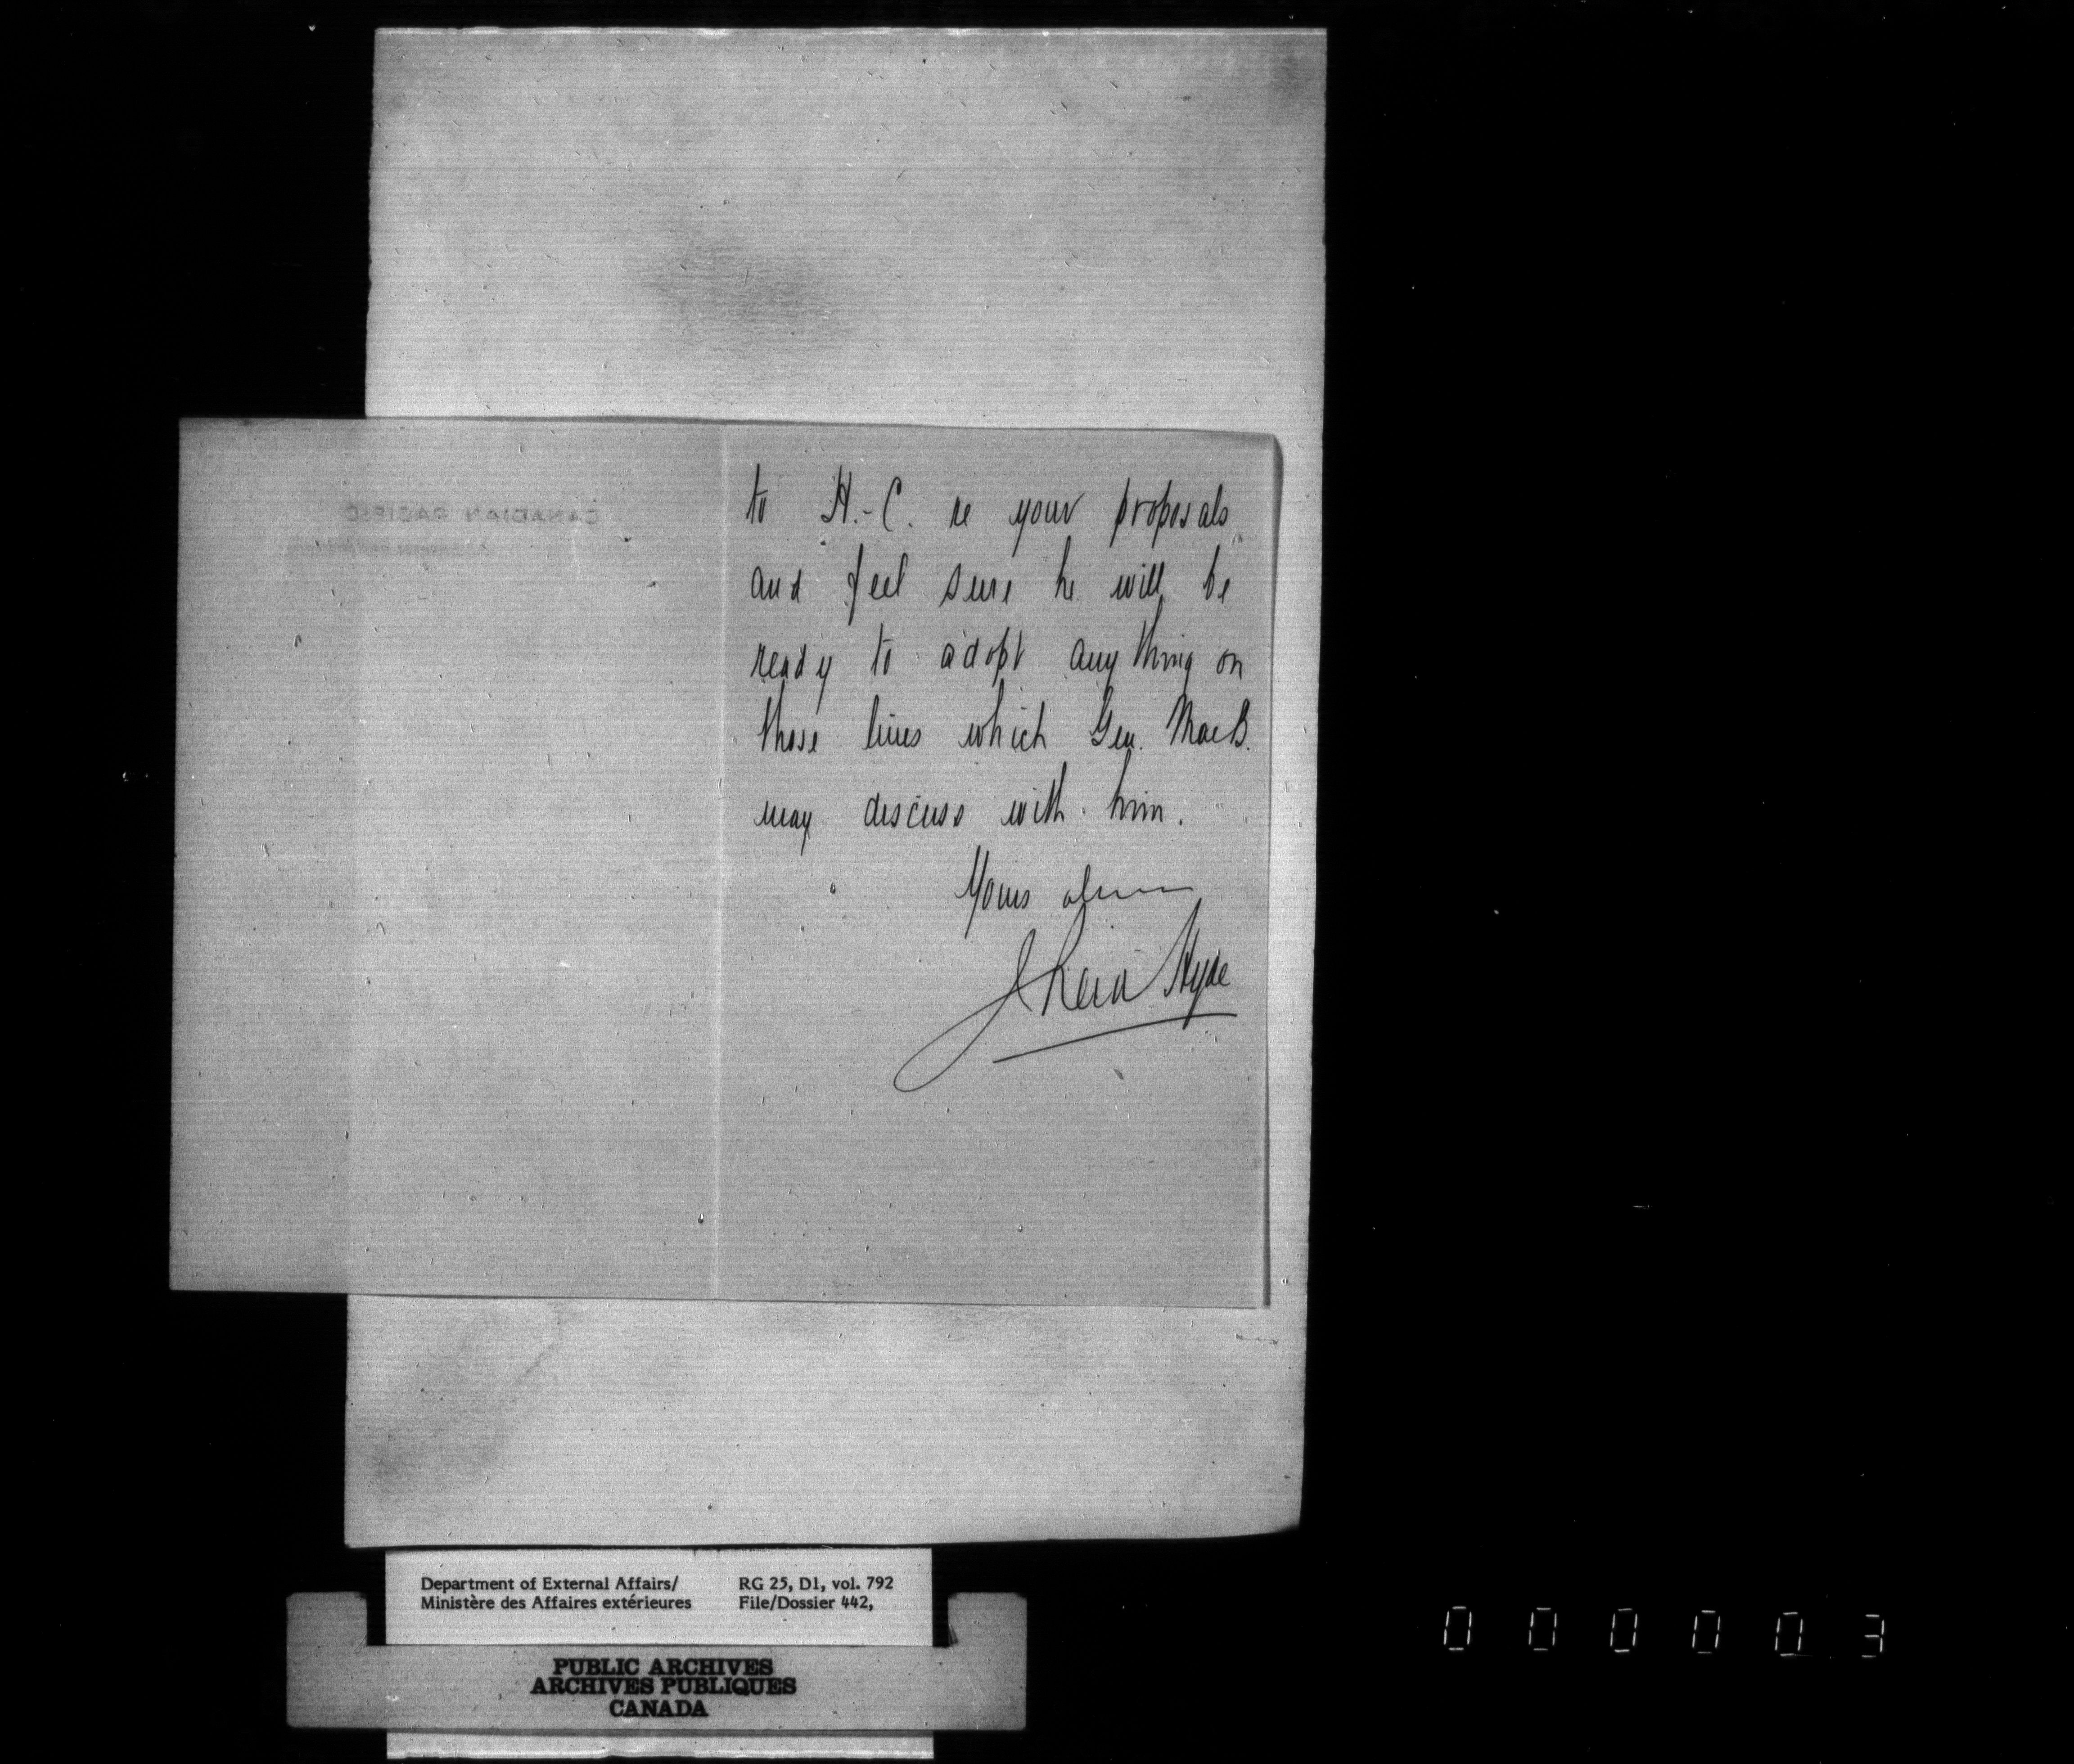 CANADIAN PACIFIC
to H.-C. re your proposals
and feel sure he will be
ready to adopt anything on
those lines which Gen. MacB.
may discuss with him.
Yours
J Reid Hyde
Department of External Affairs/
Ministère des Affaires extérieures
RG 25, D1, vol. 792
File/Dossier 442,
PUBLIC ARCHIVES
ARCHIVES PUBLIQUES
CANADA
000003